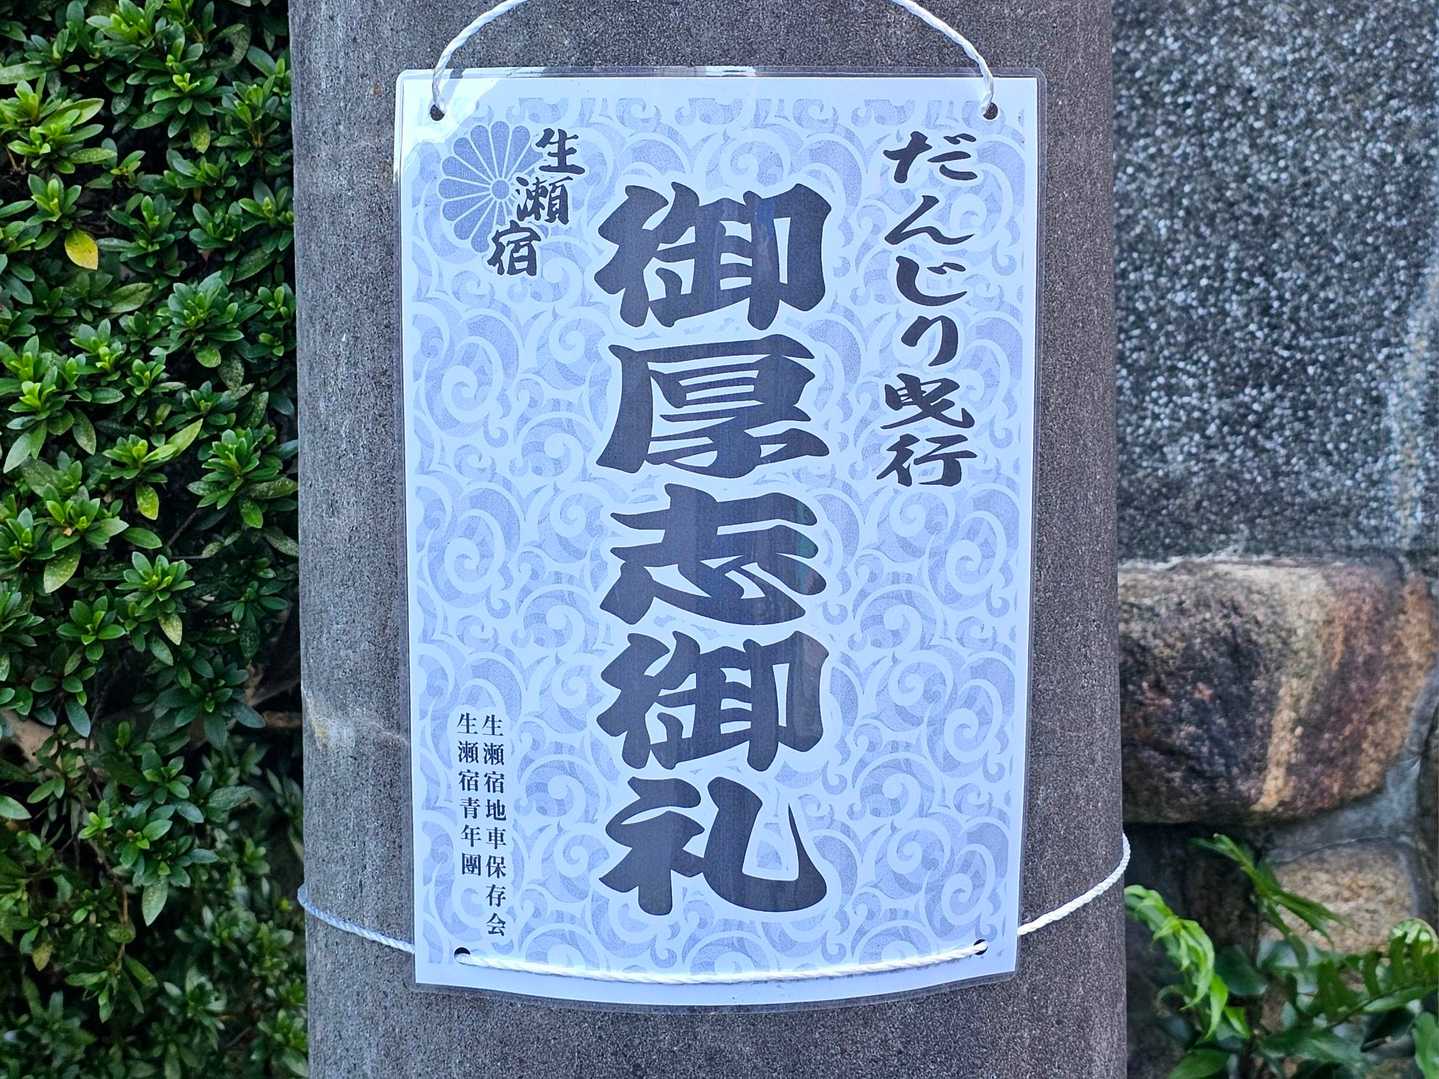 だんじり曳行
御厚志御礼
生瀬宿
生瀬宿地車保存会
生瀬宿青年團